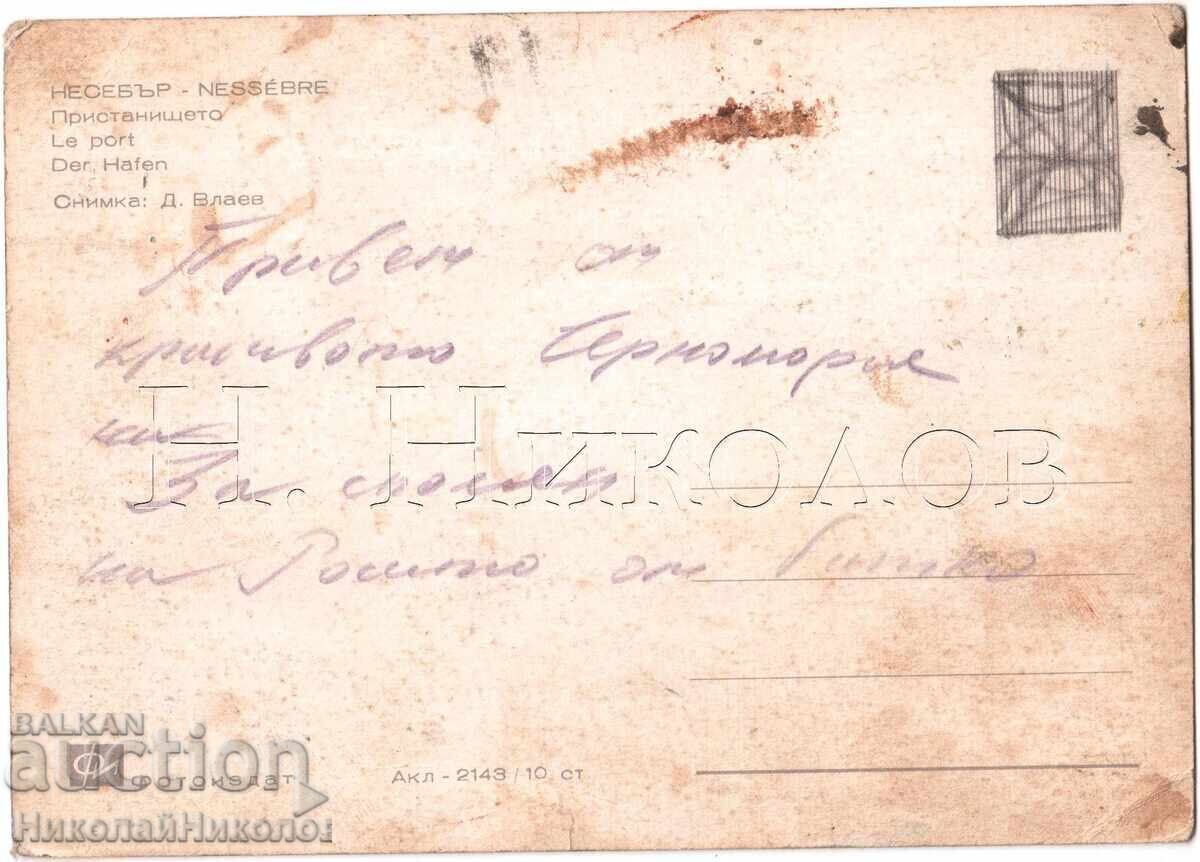 НЕСЕБЪР - NESSÉBRE
Пристанището
Le port
Der Hafen
Снимка: Д. Влаев
Привет от
красивото Черноморие
ни
За спомен
на от
Н. Николов
BALKAN
auction
ФИ Фотоиздат
Акл - 2143 / 10 ст
НиколайНиколов